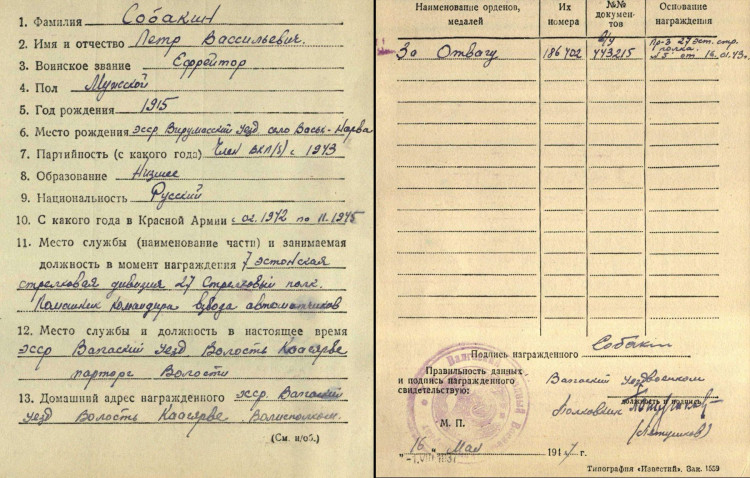 1. Фамилия Собакин
2. Имя и отчество Петр Вассильевич.
3. Воинское звание Ефрейтор
4. Пол Мужсской
5. Год рождения 1915
6. Место рождения эсср Вирумасский Уезд село Васьк-Нарва
7. Партийность (с какого года) Член ВКП(б) с 1943
8. Образование Низшее
9. Национальность Русский
10. С какого года в Красной Армии с 02.1942 по 11.1945
11. Место службы (наименование части) и занимаемая
должность в момент награждения 7 эстонская
стрелковая дивизия 27 Стрелковый полк.
Помашник Командира взвода автоматчиков
12. Место службы и должность в настоящее время
эсср Валгаский Уезд Волость Каагярве
парторг Волости
13. Домашний адрес награжденного эсср. Валгаский
Уезд Волость Каагярве Волисполком.
(См. н/об.)
Наименование орденов, медалей
Их номера
№№ документов
Основание награждения
За Отвагу 186402 б/у 443215 Пр-з 27 эст. стр. полка. №5 от 16.01.43г.
Подпись награжденного Собакин
Правильность данных
и подпись награжденного
свидетельствую:
Валгаский Уездвоенком
должность и подпись
Полковник
М. П.
"16" Мая 1947 г.
Типография «Известий». Зак. 1559